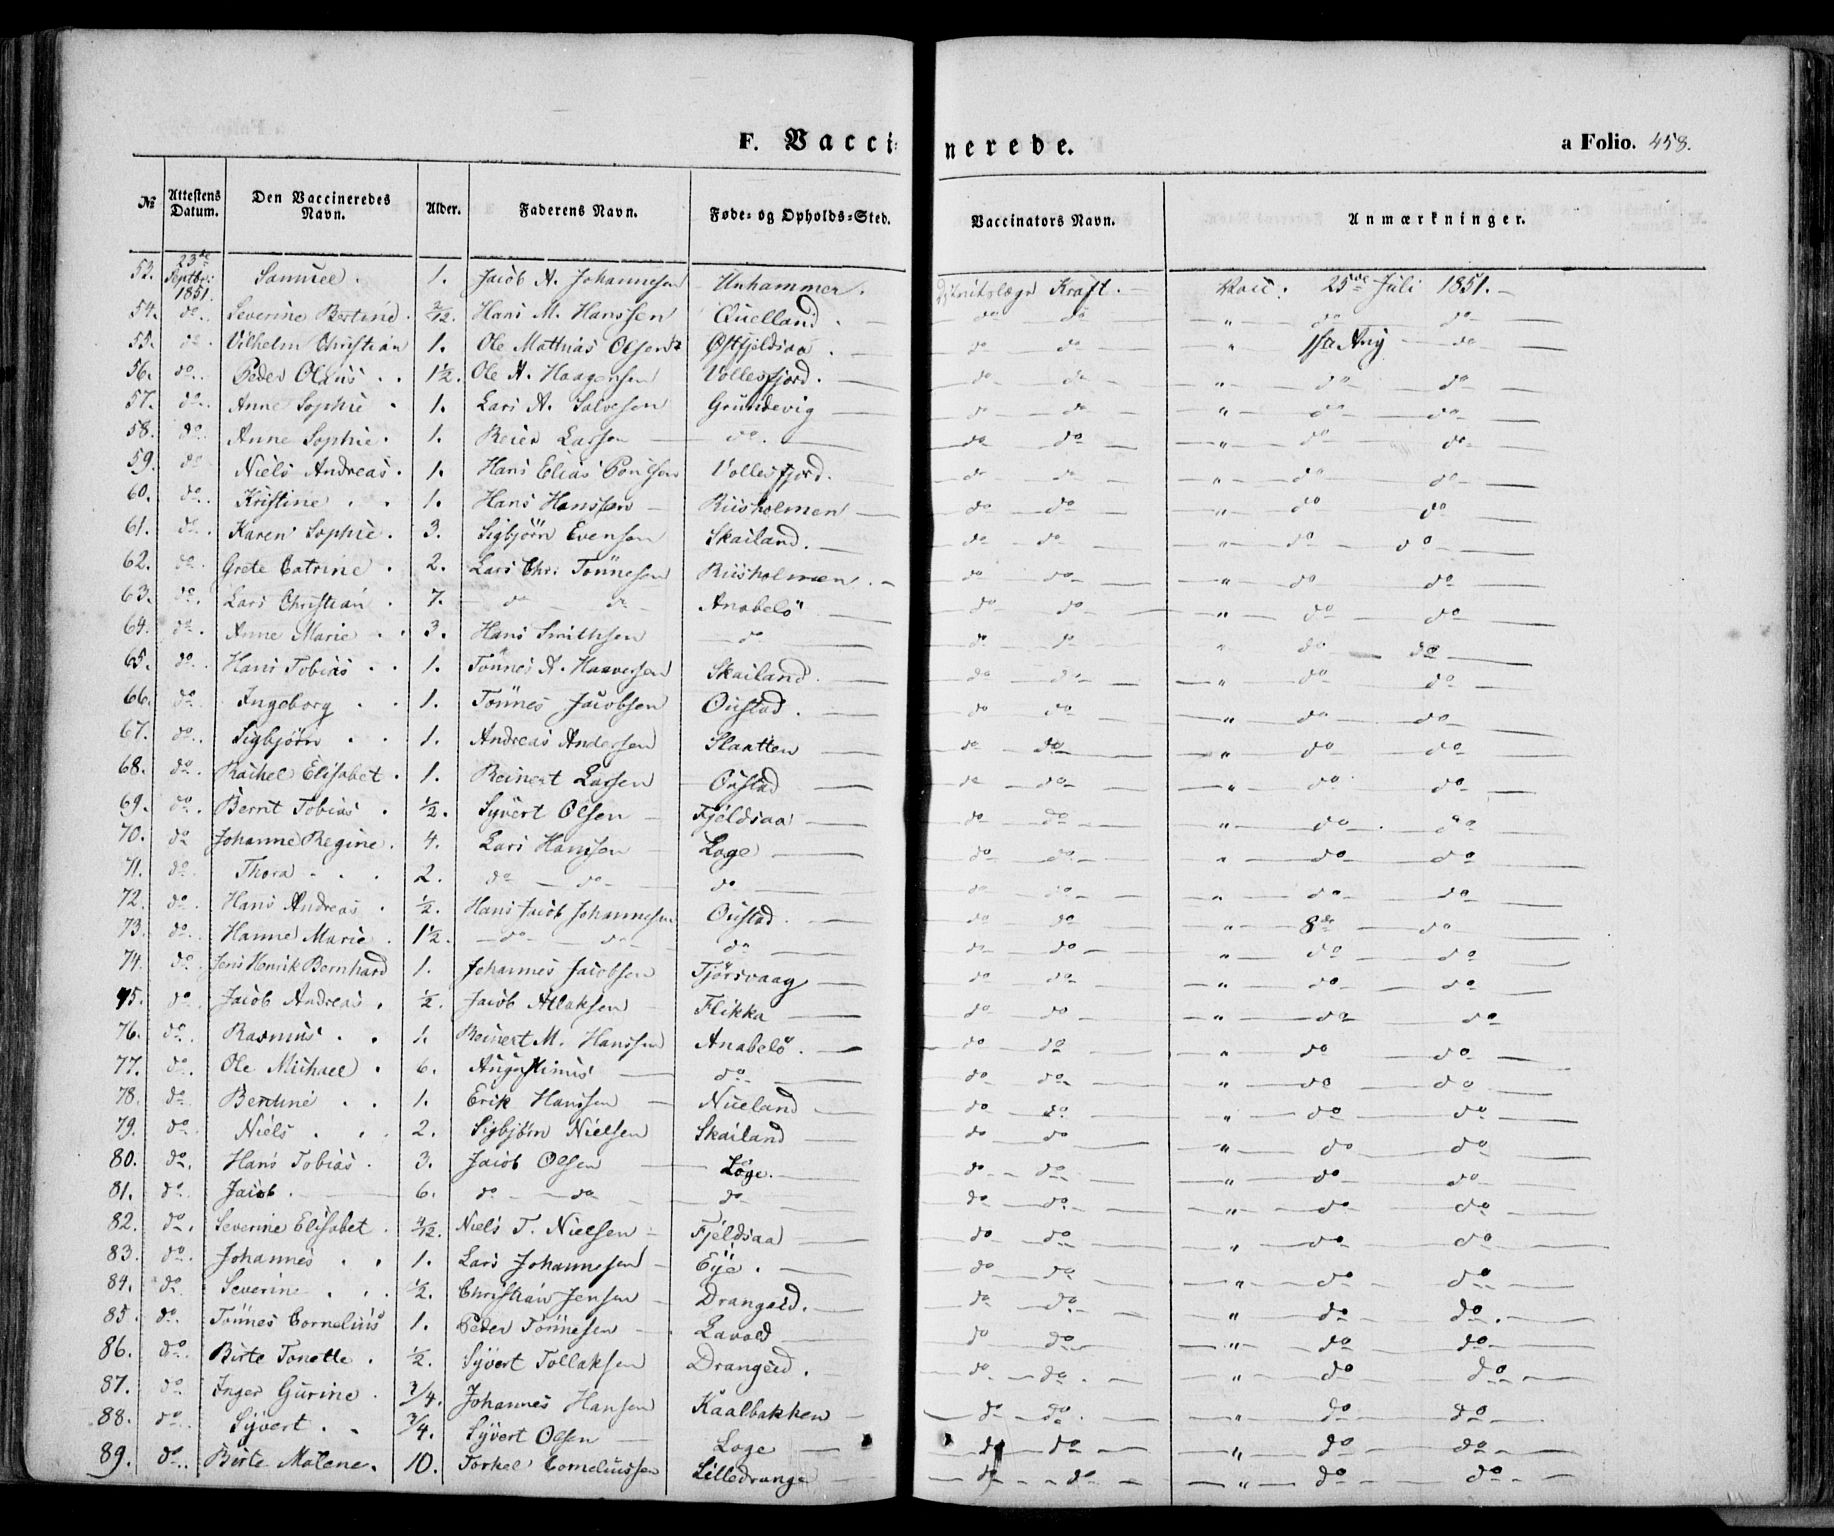 F. Vacci-nerede. a Folio. 458.
№ Attestens Datum. Den Vaccineredes Navn. Alder. Faderens Navn. Føde- og Opholds-Sted. Vaccinators Navn. Anmærkninger.
53. 23de Septbr: 1851. Samuel. 1. Jacob A. Johannesen Unhammer. Districtslæge Kraft. Vacc. 25de Juli 1851.
54. do. Severine Bertine. Hans M. Hanssen Quelland. do do " do do
55. do. Vilhelm Christian 1. Ole Mathias Olsen Østfjeldsaa. do do " 1ste Aug do
56. do. Peder Olaus 1½. Ole A. Haagensen Vollesfjord. do do " do do
57. do. Anne Sophie 1. Lars A. Salvesen Grundevig do do " do do
58. do. Anne Sophie. 1. Reier Larsen do. do do " do do
59. do Niels Andreas. 1. Hans Elias Poulsen Vollesfjord. do do " do do
60. do. Kristine 1. Hans Hanssen Riisholmen do do " do do
61. do. Karen Sophie. 3. Sigbjörn Evensen Skailand. do do " do do
62. do. Grete Catrine. 2. Lars Chr. Tönnesen Riisholmen. do do " do do
63. do. Lars Christian. 7. do do Anabelö do do " do do
64. do. Anne Marie 3. Hans Smithsen do do do " do do
65. do. Hans Tobias 1. Tönnes A. Haaversen Skailand. do do " do do
66. do. Ingeborg 1. Tönnes Jacobsen Oustad. do do " do do
67. do. Sigbjörn 1. Andreas Andersen Slaatten do do " do do
68. do. Rachel Elisabet. 1. Reinert Larsen Oustad do do " do do
69. do. Bernt Tobias. ½. Syvert Olsen Fjeldsaa do do " do do
70. do Johanne Regine. 4. Lars Hanssen Loge do do " do do
71. do. Thora 2. do do do do do " do do
72. do. Hans Andreas. ½. Hans Jacob Johannesen Oustad. do do " 8de do
73. do. Hanne Marie. 1½. do do do do do " do do
74. do. Jens Henrik Bernhard 1. Johannes Jacobsen Tjörsvaag do do " do do
75. do Jacob Andreas. ½. Jacob Atlaksen Flikka do do " do do
76. do. Rasmus 1. Reinert M. Hanssen Anabelö. do do " do do
77. do. Ole Michael. 6. Augustinus do do do " do do
78. do. Bertine 1. Erik Hanssen Nueland do do " do do
79. do. Niels 2. Sigbjörn Nielsen Skailand do do " do do
80. do. Hans Tobias. 3. Jacob Olsen Loge. do do " do do
81. do. Jacob. 6. do do do do do " do do
82. do. Severine Elisabet. Niels T. Nielsen Fjeldsaa do do " do do
83. do. Johannes 1. Lars Johannesen Eye. do do " do do
84. do Severine ½. Christian Jensen Drangeid. do do " do do
85. do. Tönnes Cornelius 1. Peder Tönnesen Lavold do do " do do.
86. do. Birte Tonette. ½. Syvert Tollaksen Drangeid. do do " do do
87. do Inger Gurine. 3/4. Johannes Hansen Kaalbakken do do " do do
88. do Syvert 3/4. Syvert Olsen Loge do do " do do
89. do. Birte Malene. 10. Torkel Corneliussen Lilledrange do do " do do